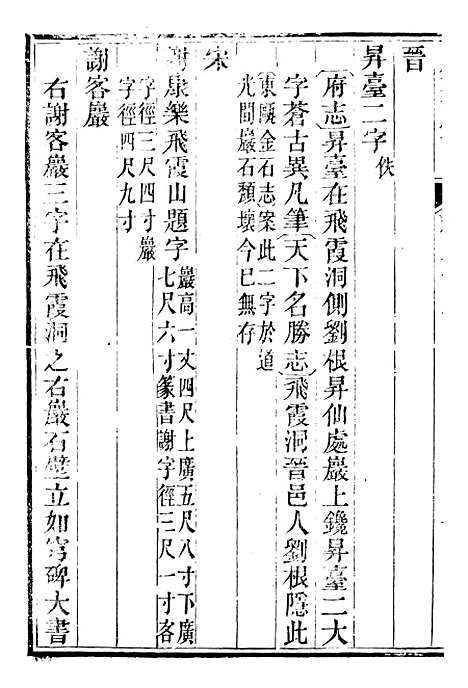 晉
昇臺二字佚
府志昇臺在飛霞洞側劉根昇仙處巖上鑱昇臺二大
字蒼古異凡筆天下名勝志飛霞洞晉邑人劉根隱此
東甌金石志案此二字於道
光間巖石頹壞今已無存
宋
謝康樂飛霞山題字巖高一丈四尺上廣五尺八寸下廣
七尺六寸篆書謝字徑三尺一寸客
字徑三尺四寸巖
字徑四尺九寸
謝客巖
右謝客巖三字在飛霞洞之右巖石壁立如穹碑大書